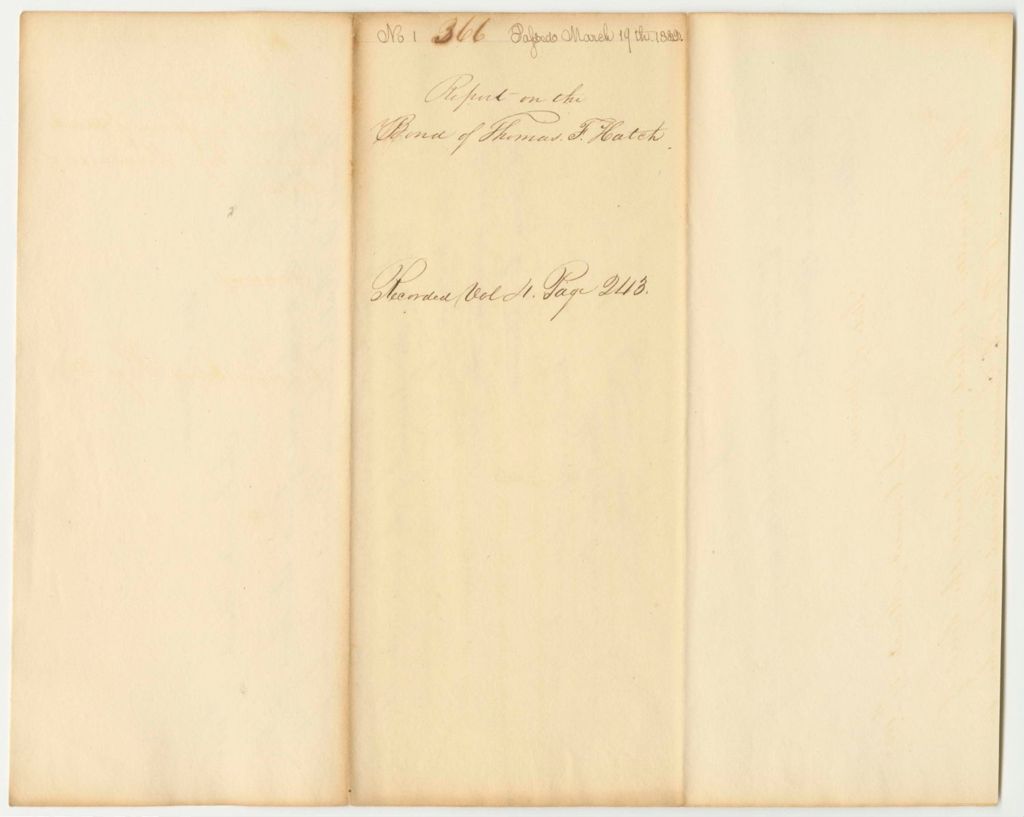 No 1 366 Passed March 19th 
Report on the
Bond of Thomas. F. Hatch.
Recorded Vol 4. Page 243.